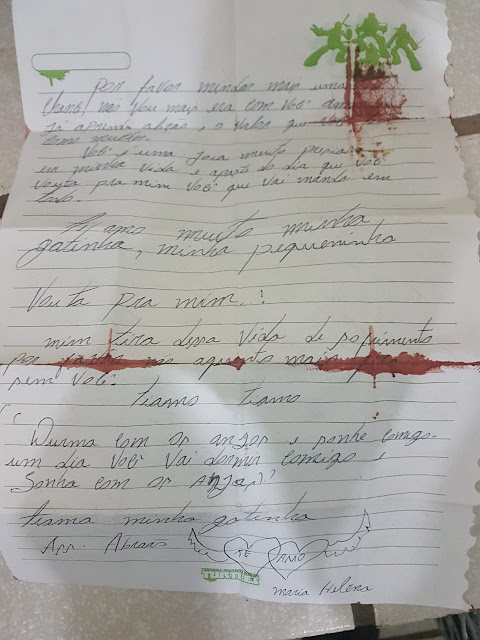 Por favor mindar mais uma
chance não vou mais era com você
já aprendi alição, e o valor que você
Você é uma joia muito
em minha vida e aparti do dia que você
vouta pra mim você que vai manda em
tudo.
Tiamo muito minha
gatinha, minha pequeninha
Vouta pra mim..!
mim tira dessa vida de sofrimento
por favor não aguento mais
sem você.
tiamo tiamo
Durma com os anjos e sonhe comigo.
um dia você vai dormir comigo e
Sonha com os anjos)'
tiamo minha gatinha
Ass:
TE AMO
Maria Helena